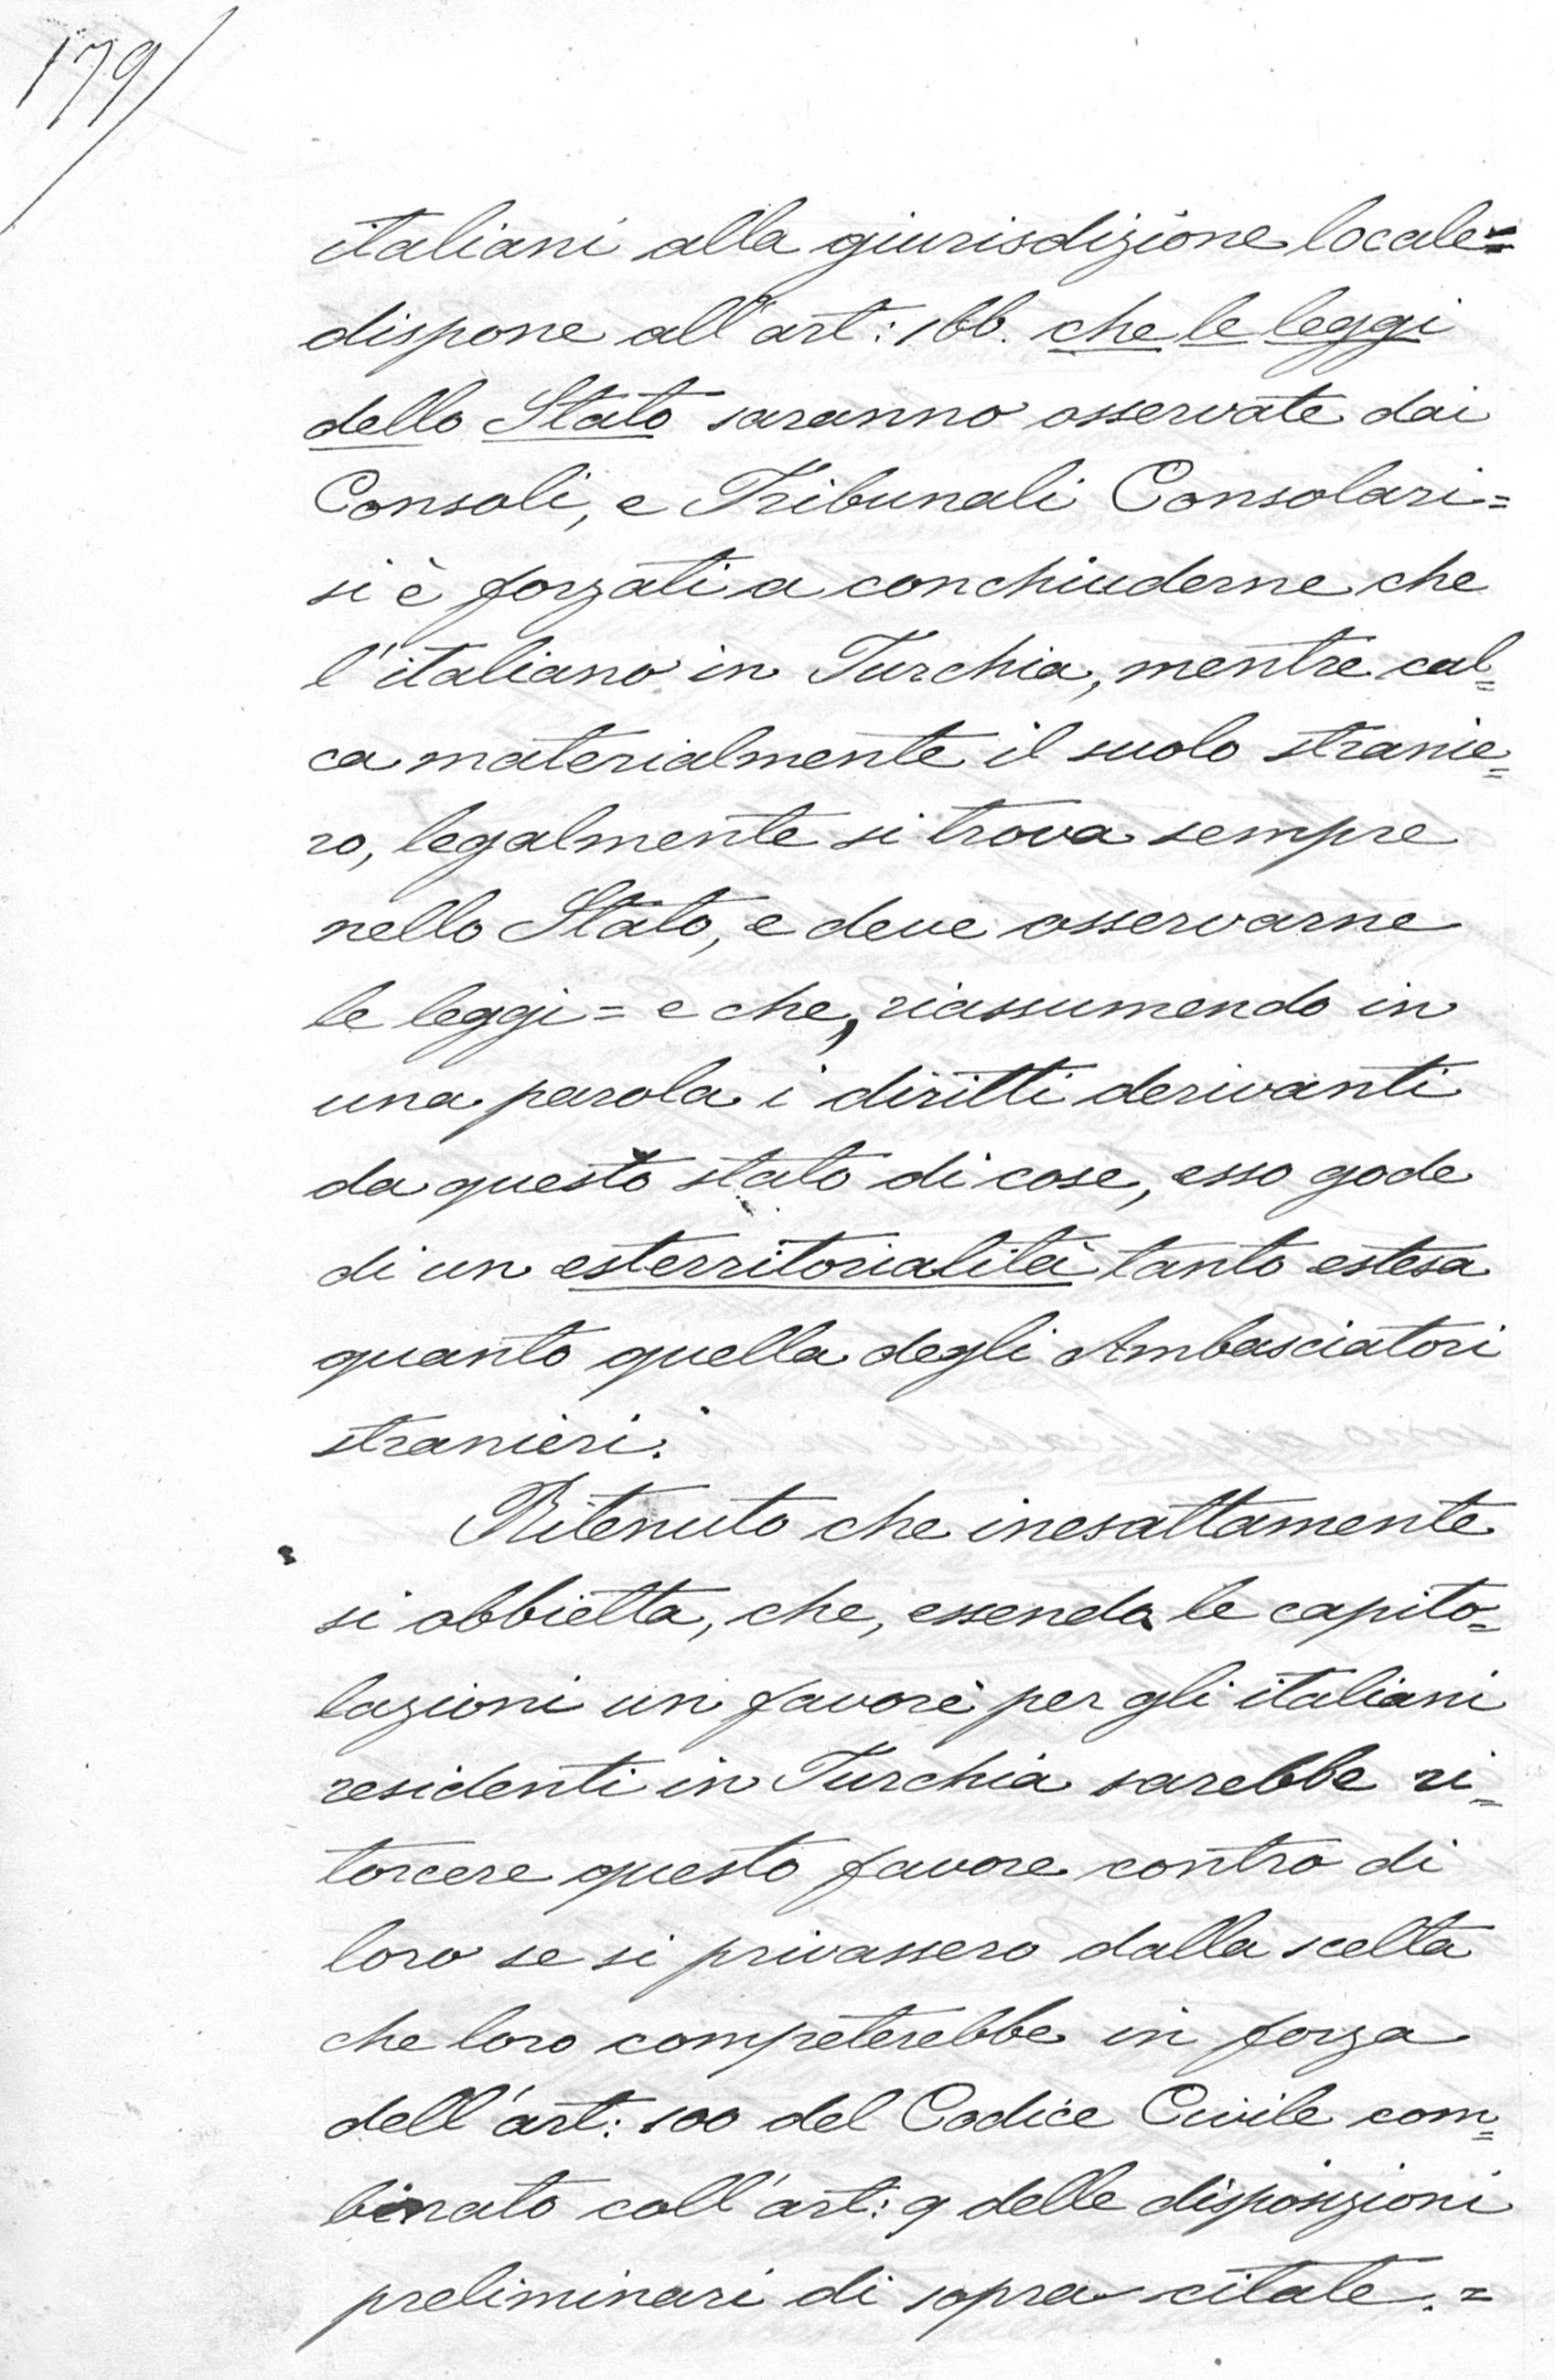 179/
italiani alla giurisdizione locale=
dispone all'art: 166. che le leggi
dello Stato saranno osservate dai
Consoli, e Tribunali Consolari=
si è forzati a conchiuderne che
l'italiano in Turchia, mentre cal=
ca materialmente il suolo stranie=
ro, legalmente si trova sempre
nello Stato, e deve osservarne
le leggi = e che, riassumendo in
una parola i diritti derivanti
da questo stato di cose, esso gode
di un esterritorialità tanto estesa
quanto quella degli Ambasciatori
stranieri.
Ritenuto che inesattamente
si obbietta, che, essendo le capito=
lazioni un favore per gli italiani
residenti in Turchia sarebbe ri=
torcere questo favore contro di
loro se si privassero dalla scelta
che loro competerebbe in forza
dell'art: 100 del Codice Civile com=
binato coll'art: 9 delle disposizioni
preliminari di sopra citate. =